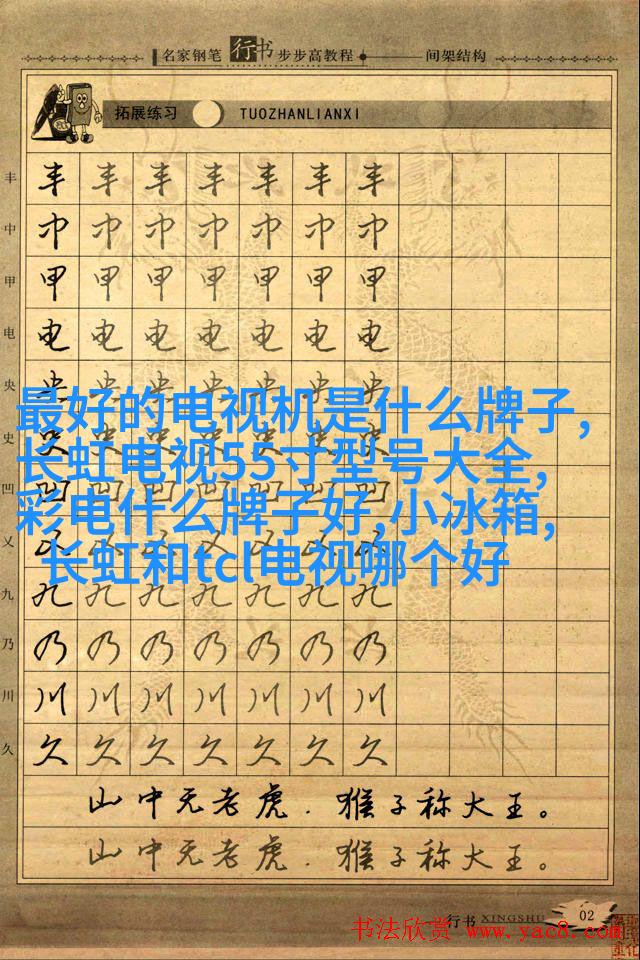 名家钢笔行书步步高教程 间架结构
拓展练习 TUOZHANLIANXI
丰 丰 丰 丰 丰 丰 丰 丰
中 中 中 中 中 中 中 中
甲 甲 甲 甲 甲 甲 甲 甲
电 电 电 电 电 电 电 电
央 央 央 央 央 央 央 央
最好的电视机是什么牌子,
史 史 史 史 史 史 史 史
长虹电视55寸型号大全,
凹 凹 凹 凹 凹 凹 凹 凹
彩电什么牌子好,小冰箱,
义 义 义 义 义 义 义 义
长虹和tcl电视哪个好
九 九 九 九 九 九 九 九
乃 乃 乃 乃 乃 乃 乃 乃
川 川 川 川 川 川 川 川
久 久 久 久 久 久 久 久
山中无老虎.猴子称大王。
山中无老虎.猴子称大王。
行书 XINGSHU 02
书法欣赏 www.yac8.com